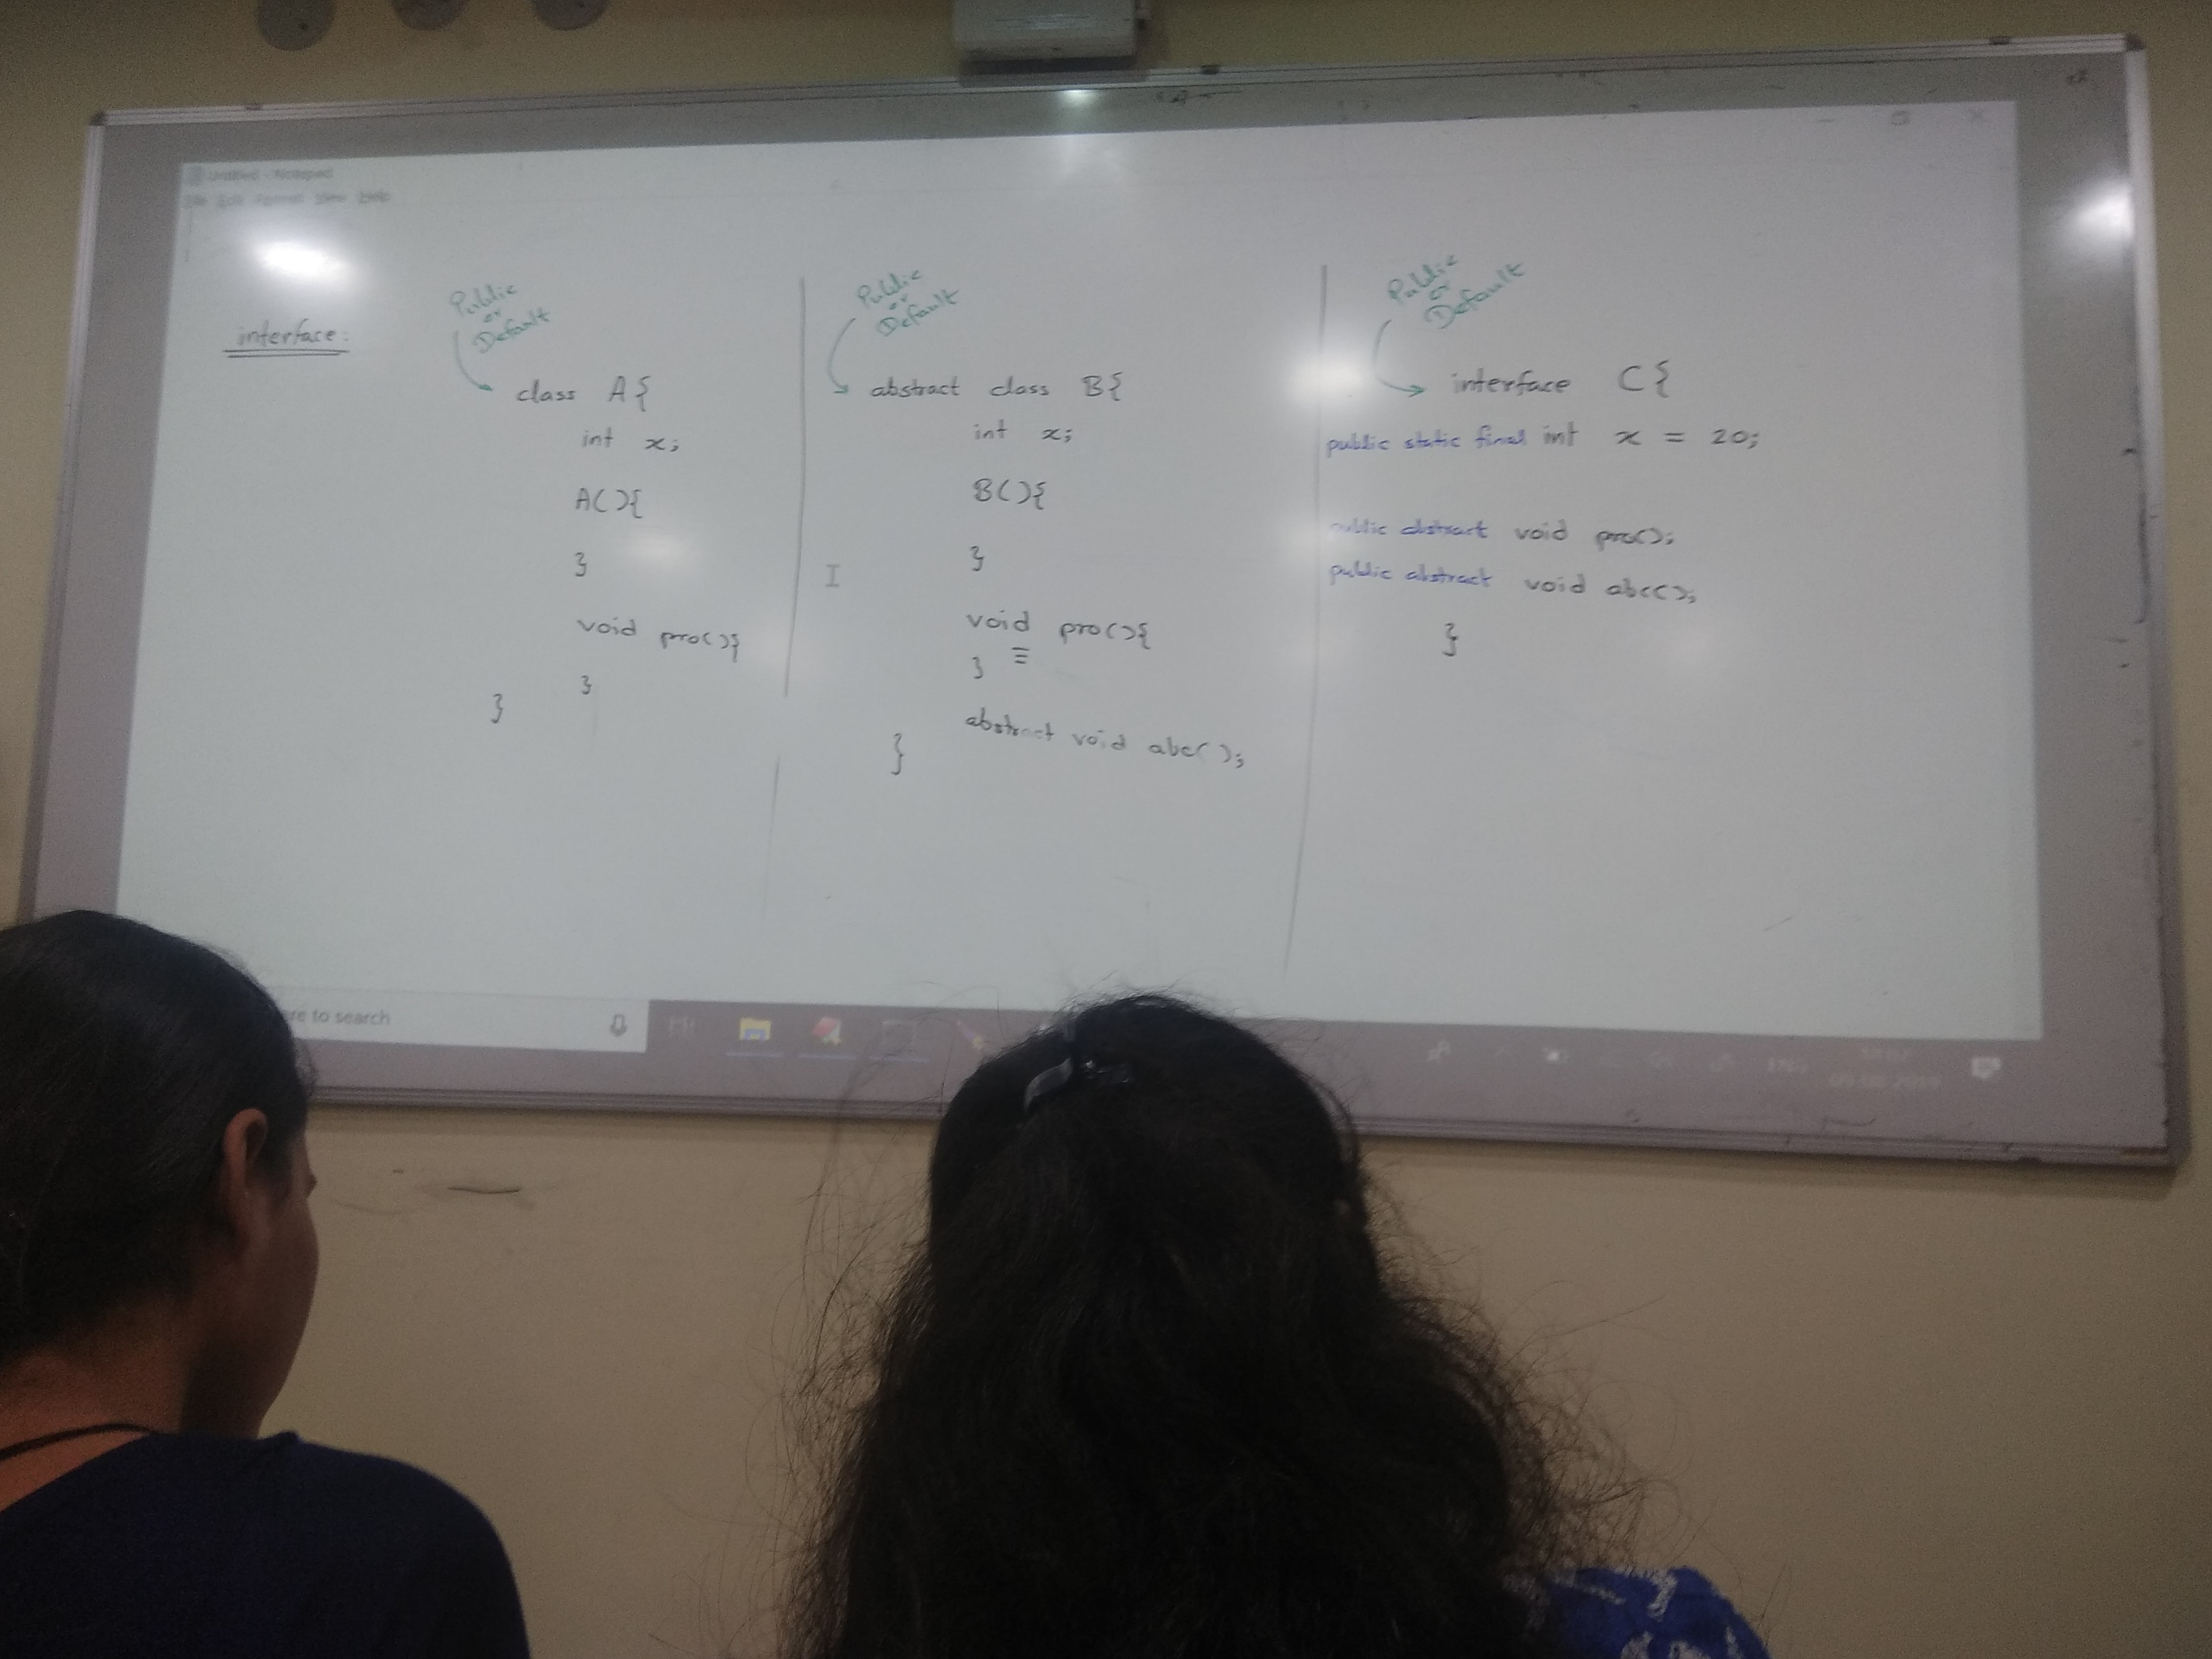 Untitled - Notepad
Edit Format View Help
interface:
Public
or
Default
class A{
int x;
A(){
}
void pro(){
}
}
Public
or
Default
abstract class B{
int x;
B(){
}
void pro(){
}
abstract void abc();
}
Public
or
Default
interface C{
public static final int x = 20;
public abstract void pro();
public abstract void abc();
}
re to search